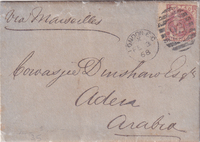 Via Marseilles
Cowasjee Dinshaw Esqre
Aden
Arabia